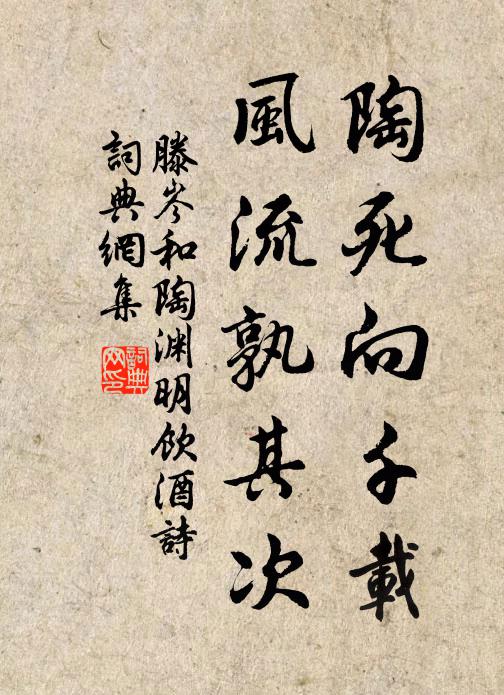 陶死向千載
風流孰其次
滕岑和陶渊明饮酒詩
詞典網集
詞典网印